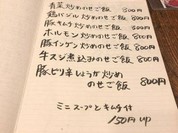 青菜炒めのせご飯 800円
鶏バジル炒めのせご飯 800円
豚キムチ炒めのせご飯 800円
ホルモン炒めのせご飯 800円
豚インゲン炒めのせご飯 800円
牛スジ煮込みのせご飯 800円
豚ピリ辛しょうが炒め
のせご飯 800円
ミニスープとキムチ付
150円up